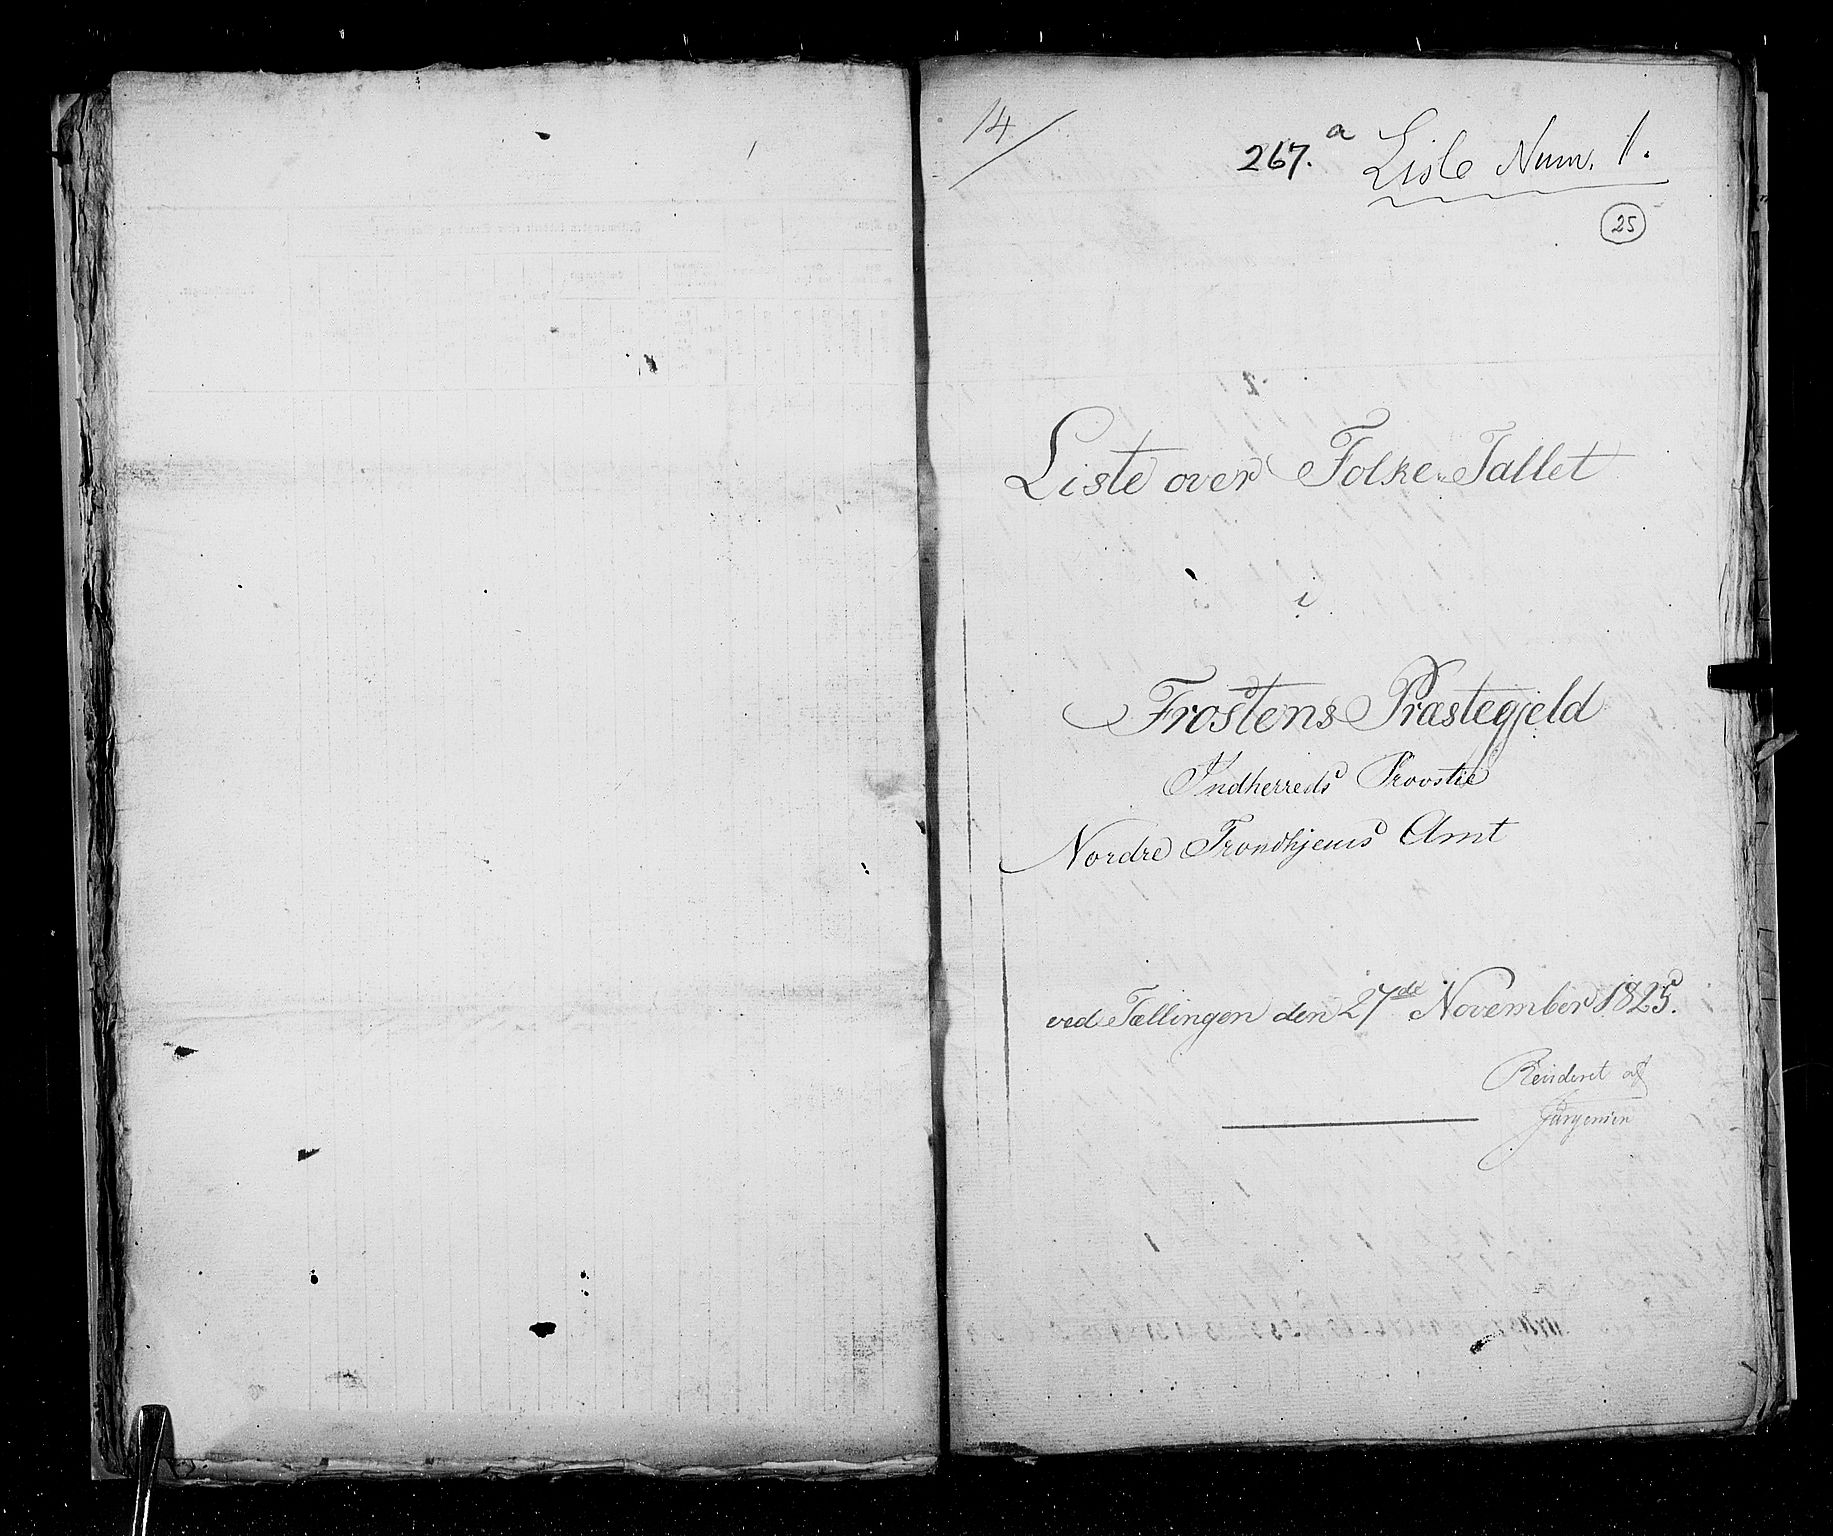 14
267.a Liste Num. 1.
25
Liste over Folke-Tallet
i
Frostens Præstegjeld
Indherreds Provstie
Nordre Trondhjems Amt
ved Tællingen den 27de November 1825.
Revideret af
Jürgensen